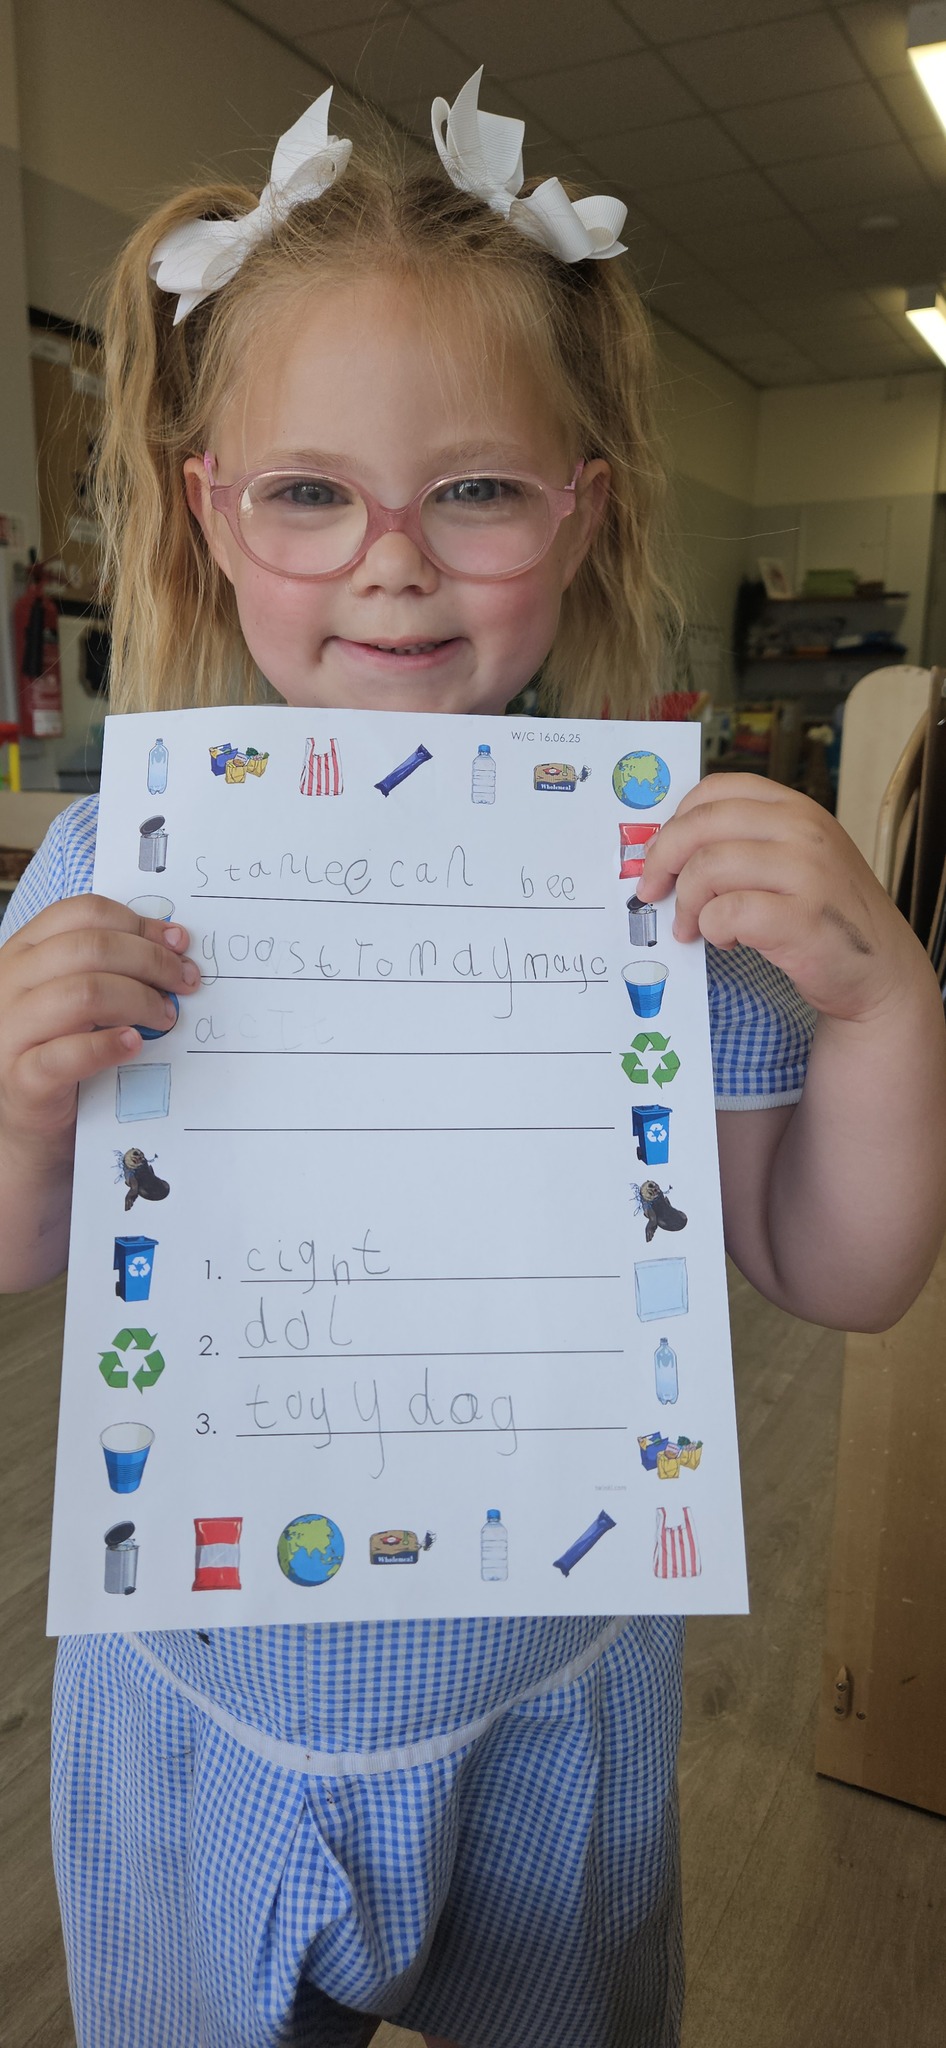 W/C 16.06.25
Wholemeal
stanlee can bee
yoost To mayc
a
1. cignt
2. dol
3. toyy dog
twinkl.com
Wholemeal